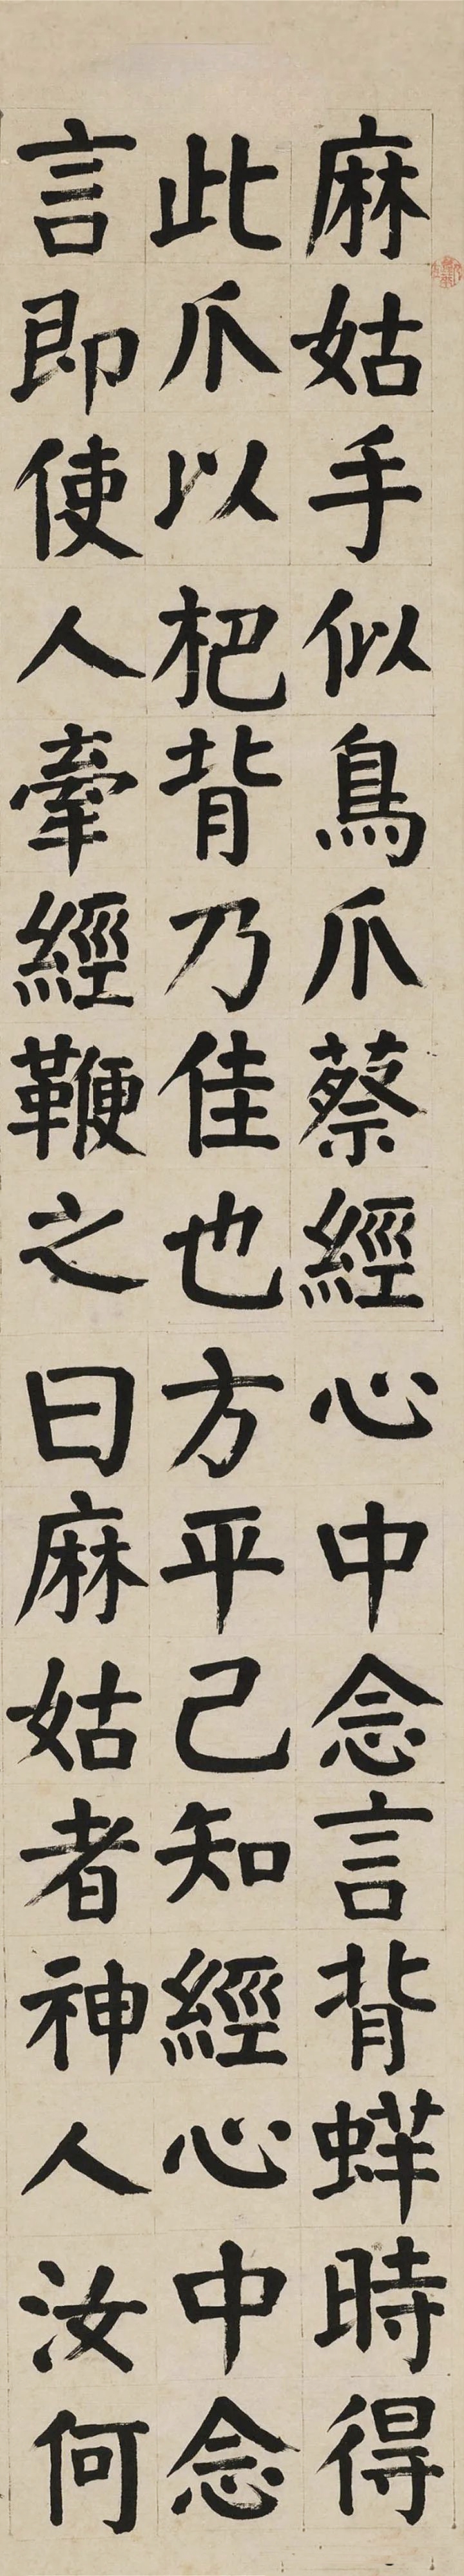 麻姑手似鳥爪蔡經心中念言背蛘時得
此爪以杷背乃佳也方平已知經心中念
言即使人牽經鞭之曰麻姑者神人汝何